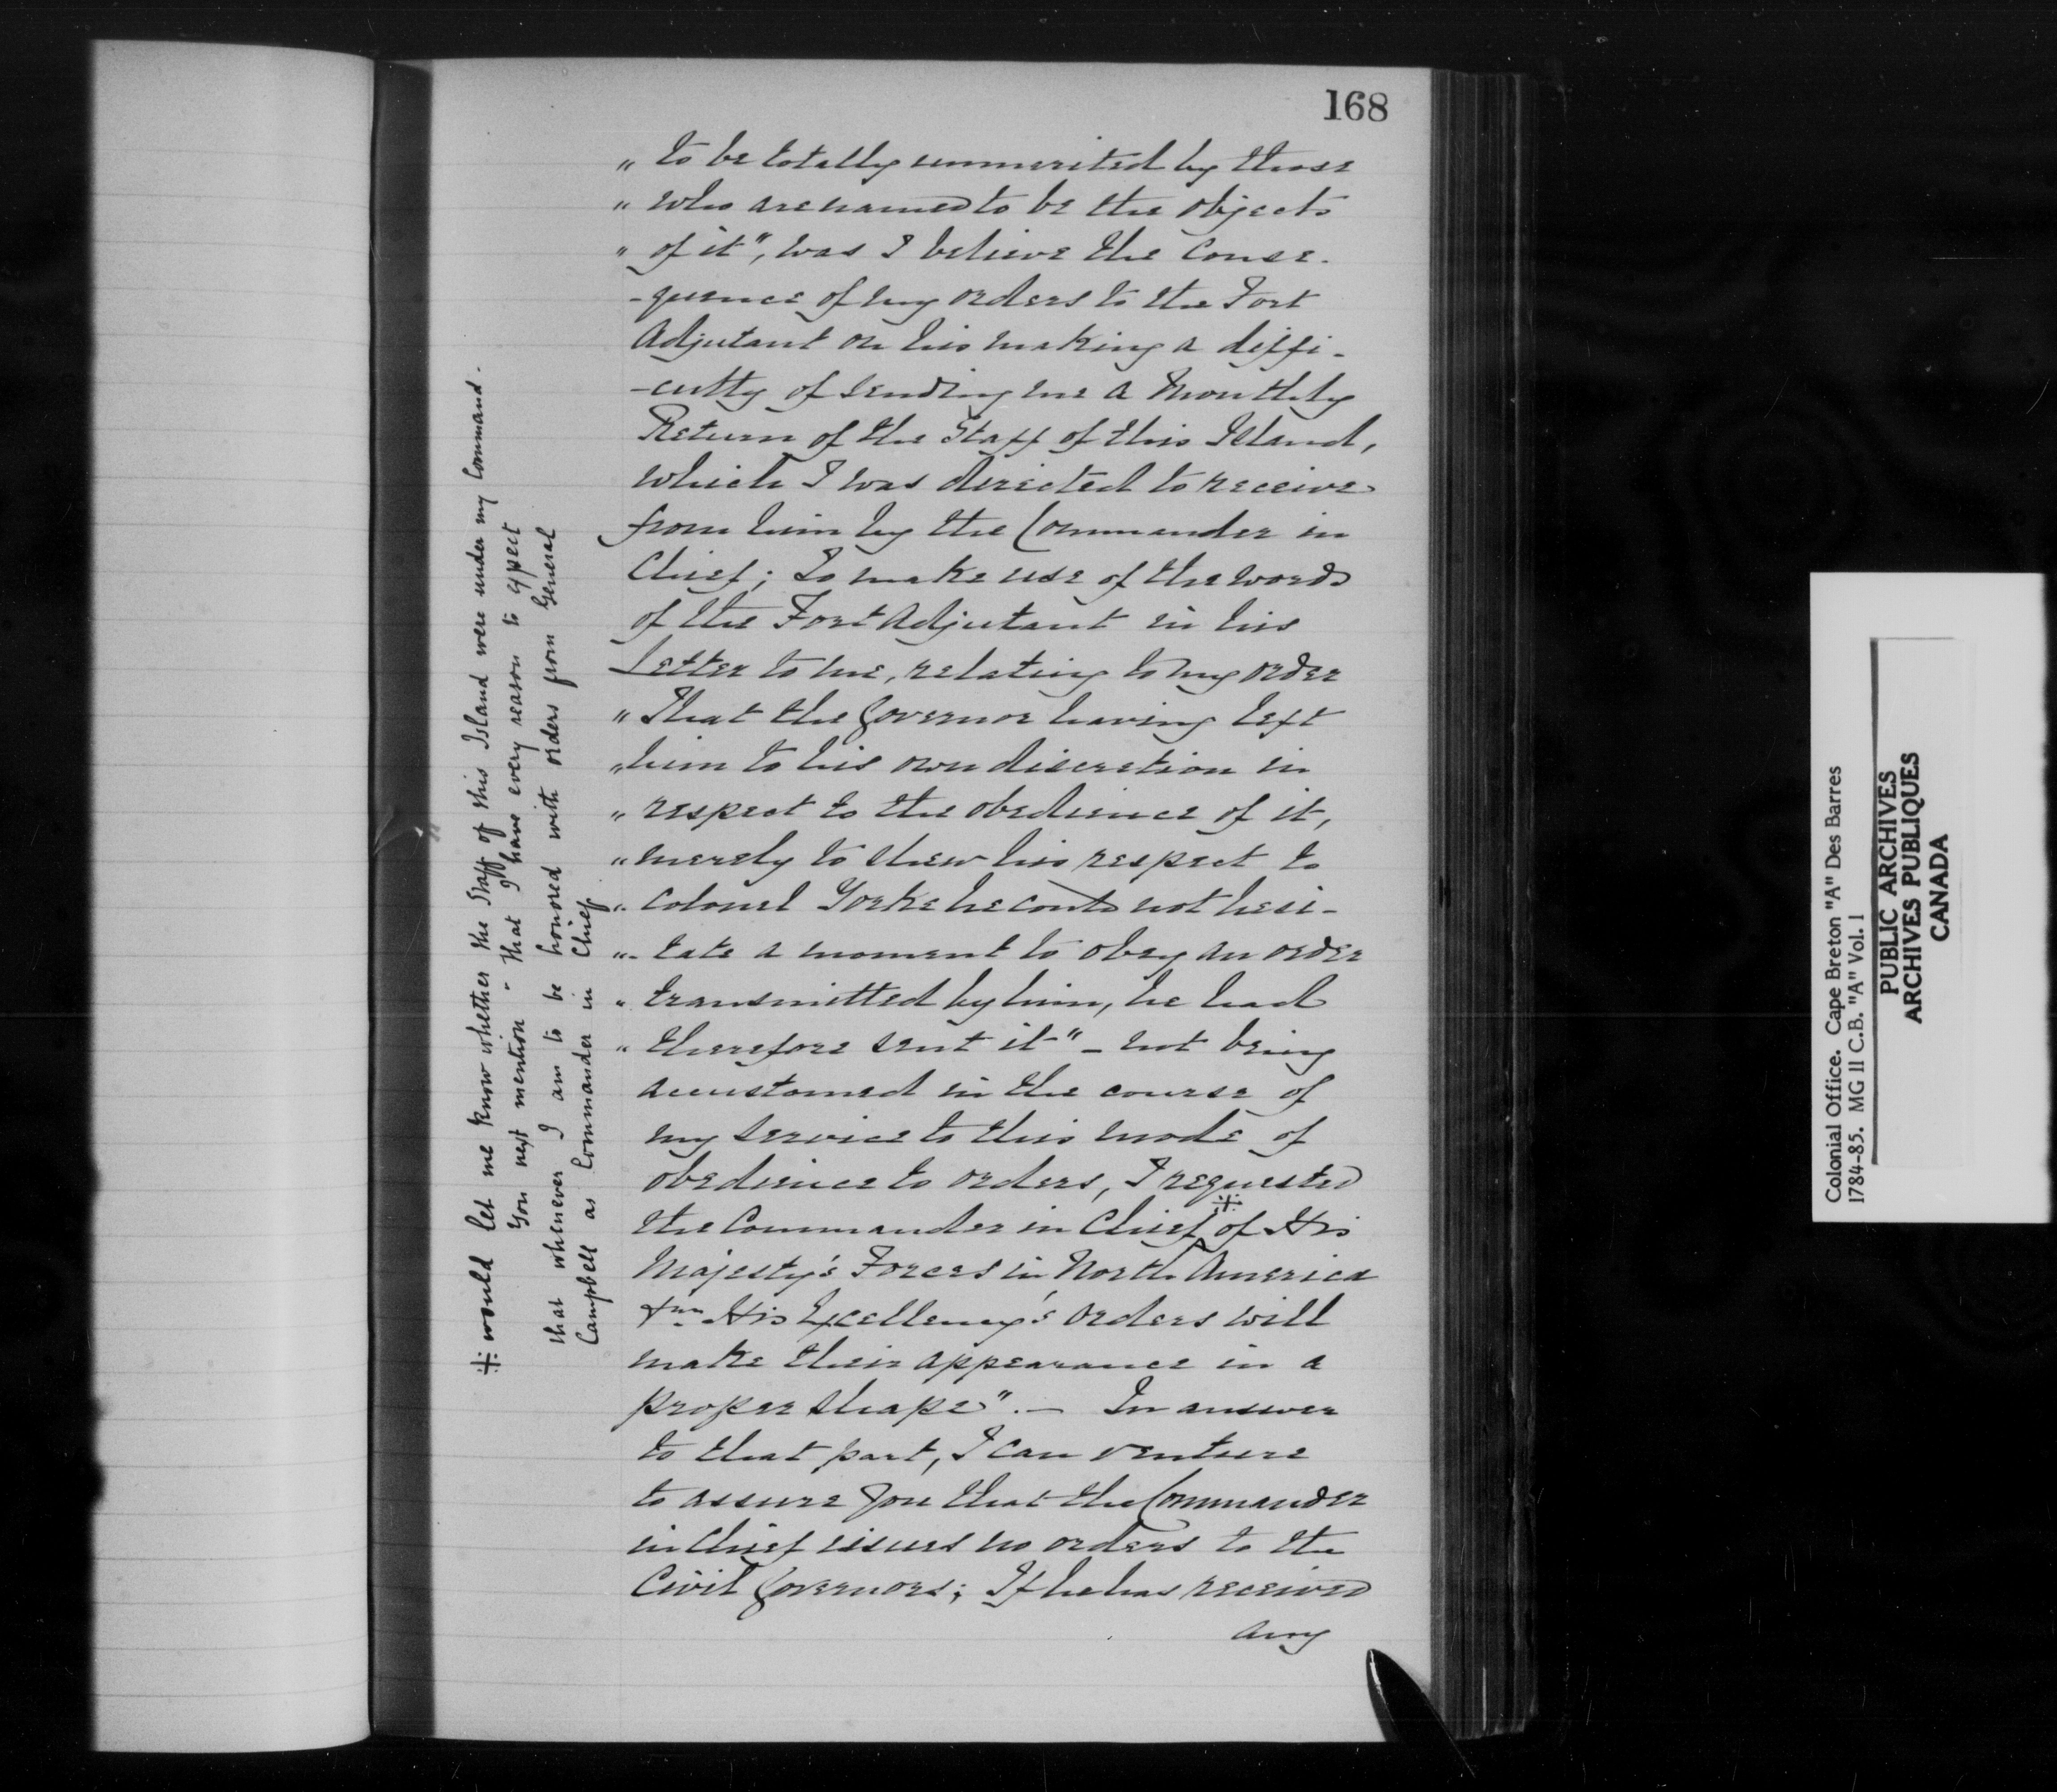 168
„ to be totally unmerited by those
„ who are named to be the objects
„ of it", was I believe the conse-
-quence of my orders to the Fort
Adjutant on his making a diffi-
-culty of sending me a Monthly
Return of the Staff of this Island,
which I was directed to receive
from him by the Commander in
Chief; To make use of the words
of the Fort Adjutant in his
Letter to me, relating to my order
„ That the Governor having left
„ him to his own discretion in
„ respect to the obedience of it,
„ merely to shew his respect to
„ Colonel Yorke he could not hesi-
„ -tate a moment to obey an order
„ transmitted by him, he had
„ therefore sent it" - not being
accustomed in the course of
my service to this mode of
obedience to orders, I requested
the Commander in Chief ⁜ of His
Majesty's Forces in North America
His Excellency's orders will
make their appearance in a
proper shape". — In answer
to that part, I can venture
to assure you that the Commander
in Chief issues no orders to the
Civil Governors; If he has received
any
⁜ would let me know whether the Staff of this Island were under my Command.
You next mention - that I have every reason to expect
that whenever I am to be honored with orders from General
Campbell as Commander in Chief
Colonial Office. Cape Breton "A" Des Barres
1784-85. MG 11 C.B. "A" Vol. 1
PUBLIC ARCHIVES
ARCHIVES PUBLIQUES
CANADA